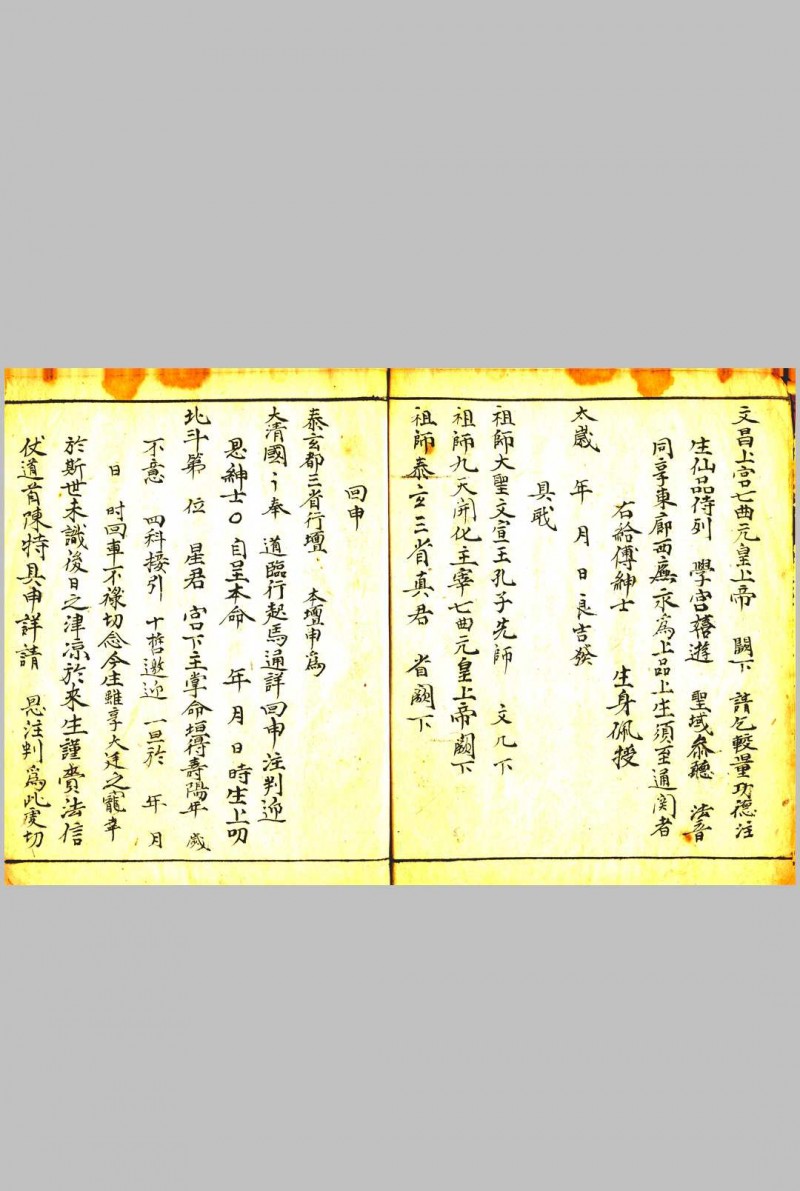 文昌上宮七曲元皇上帝 闕下 請乞較量功德注
生仙品待列 學宮禧遊 聖域叅聽 法音
同享東廊西廡永為上品上生須至通関者
右給傅紳士 生身佩授
太歲 年 月 日良吉發
具戢
祖師大聖文宣王孔子先師 文几下
祖師九天開化主宰七曲元皇上帝 闕下
祖師泰玄三省真君 省闕下
回申
泰玄都三省行壇 本壇申為
大清國 奉 道臨行起馬通詳回申注判迎
恩紳士〇 自呈本命 年 月 日 時生上叨
北斗第 位 星君 宮下主掌命垣得壽陽年 歲
不意 四科接引 十哲邀迎 一旦於 年 月
日 時回車不祿切念今生雖享大廷之寵幸
於斯世未識後日之津凉於来生謹賫法信
仗道首陳特具申詳請 恩注判為此處切